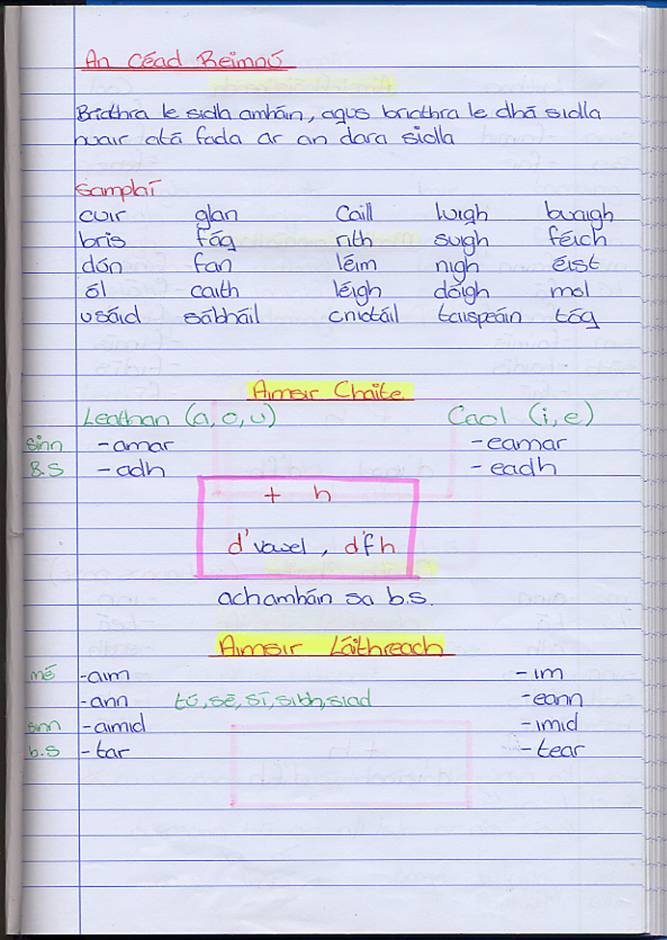 An Céad Reimniú
Briathra le siolla amháin, agus briathra le dhá siolla
nuair atá fada ar an dara siolla
Samplaí
cuir glan caill luigh buaigh
bris fág rith suigh féich
dún fan léim nigh éist
ól caith léigh dóigh mol
usáid sábháil cniotáil taispeáin tóg
Aimsir Chaite
Leathan (a, o, u) Caol (i, e)
sinn -amar -eamar
B.S -adh -eadh
+ h
d' vowel, d'fh
ach amháin sa b.s.
Aimsir Láithreach
mé -aim -im
-ann tú, sé, sí, sibh, siad -eann
sinn -aimid -imid
b.s -tar -tear